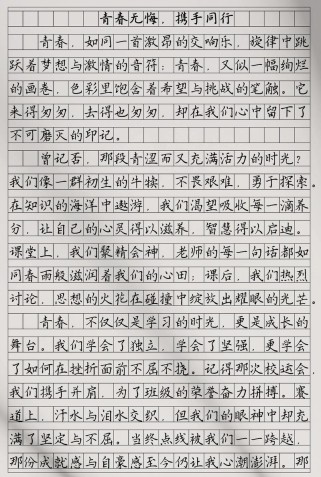 青春无悔，携手同行
青春，如同一首激昂的交响乐，旋律中跳
跃着梦想与激情的音符；青春，又似一幅绚烂
的画卷，色彩里饱含着希望与挑战的笔触。它
来得匆匆，去得也匆匆，却在我们心中留下了
不可磨灭的印记。
曾记否，那段青涩而又充满活力的时光？
我们像一群初生的牛犊，不畏艰难，勇于探索。
在知识的海洋中遨游，我们渴望吸收每一滴养
分，让自己的心灵得以滋养，智慧得以启迪。
课堂上，我们聚精会神，老师的每一句话都如
同春雨般滋润着我们的心田；课后，我们热烈
讨论，思想的火花在碰撞中绽放出耀眼的光芒。
青春，不仅仅是学习的时光，更是成长的
舞台。我们学会了独立，学会了坚强，更学会
了如何在挫折面前不屈不挠。记得那次校运会，
我们携手并肩，为了班级的荣誉奋力拼搏。赛
道上，汗水与泪水交织，但我们的眼神中却充
满了坚定与不屈。当终点线被我们一一跨越，
那份成就感与自豪感至今仍让我心潮澎湃。那